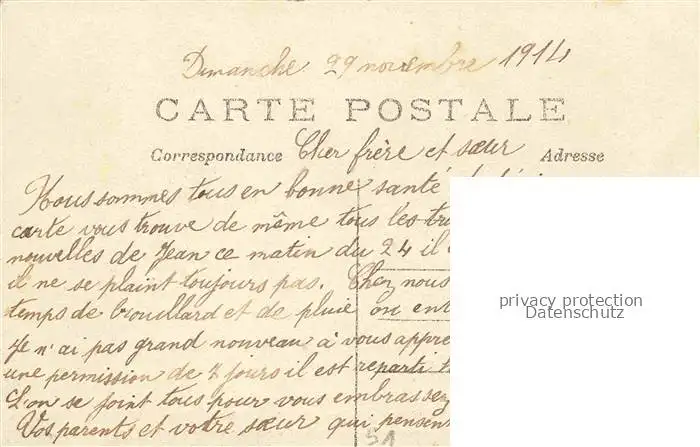 Dimanche 29 novembre 1914
CARTE POSTALE
Correspondance Cher frère et sœur Adresse
Nous sommes tous en bonne santé
carte vous trouve de même tous les
nouvelles de Jean ce matin du 24 il
il ne se plaint toujours pas. Chez nous
temps de brouillard et de pluie on
Je n'ai pas grand nouveau à vous
une permission de 7 jours il est reparti
L'on se joint tous pour vous embrasser
Vos parents et votre sœur qui
51
privacy protection
Datenschutz